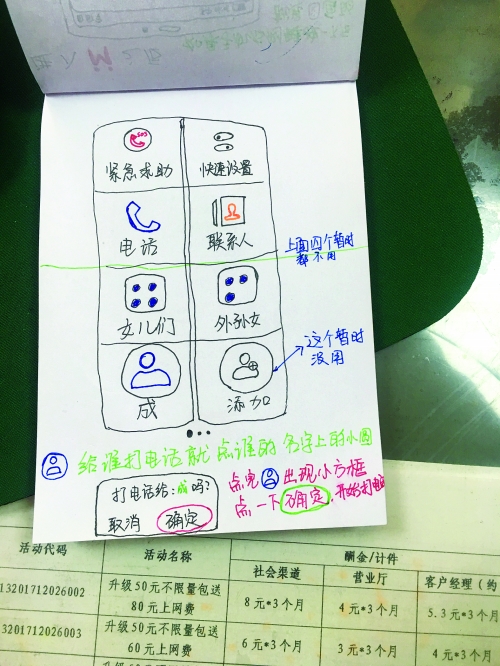 SOS
紧急求助 快速设置
电话 联系人
上面四个暂时
都不用
女儿们 外孙女
这个暂时
没用
成 添加
给谁打电话就点谁的名字上的小图
点完 出现小方框
点一下确定,开始打电话
打电话给:成吗?
取消 确定
活动代码 活动名称 酬金/计件
社会渠道 营业厅 客户经理(约
13201712026002 升级50元不限量包送 8元*3个月 4元*3个月 5.3元*3个月
80元上网费
3201712026003 升级50元不限量包送 6元*3个月 3元*3个月 4元*3个月
60元上网费